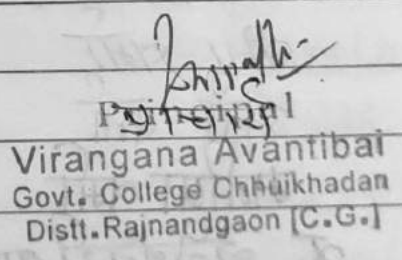 Principal
प्राचार्य
Virangana Avantibai
Govt. College Chhuikhadan
Distt.Rajnandgaon [C.G.]